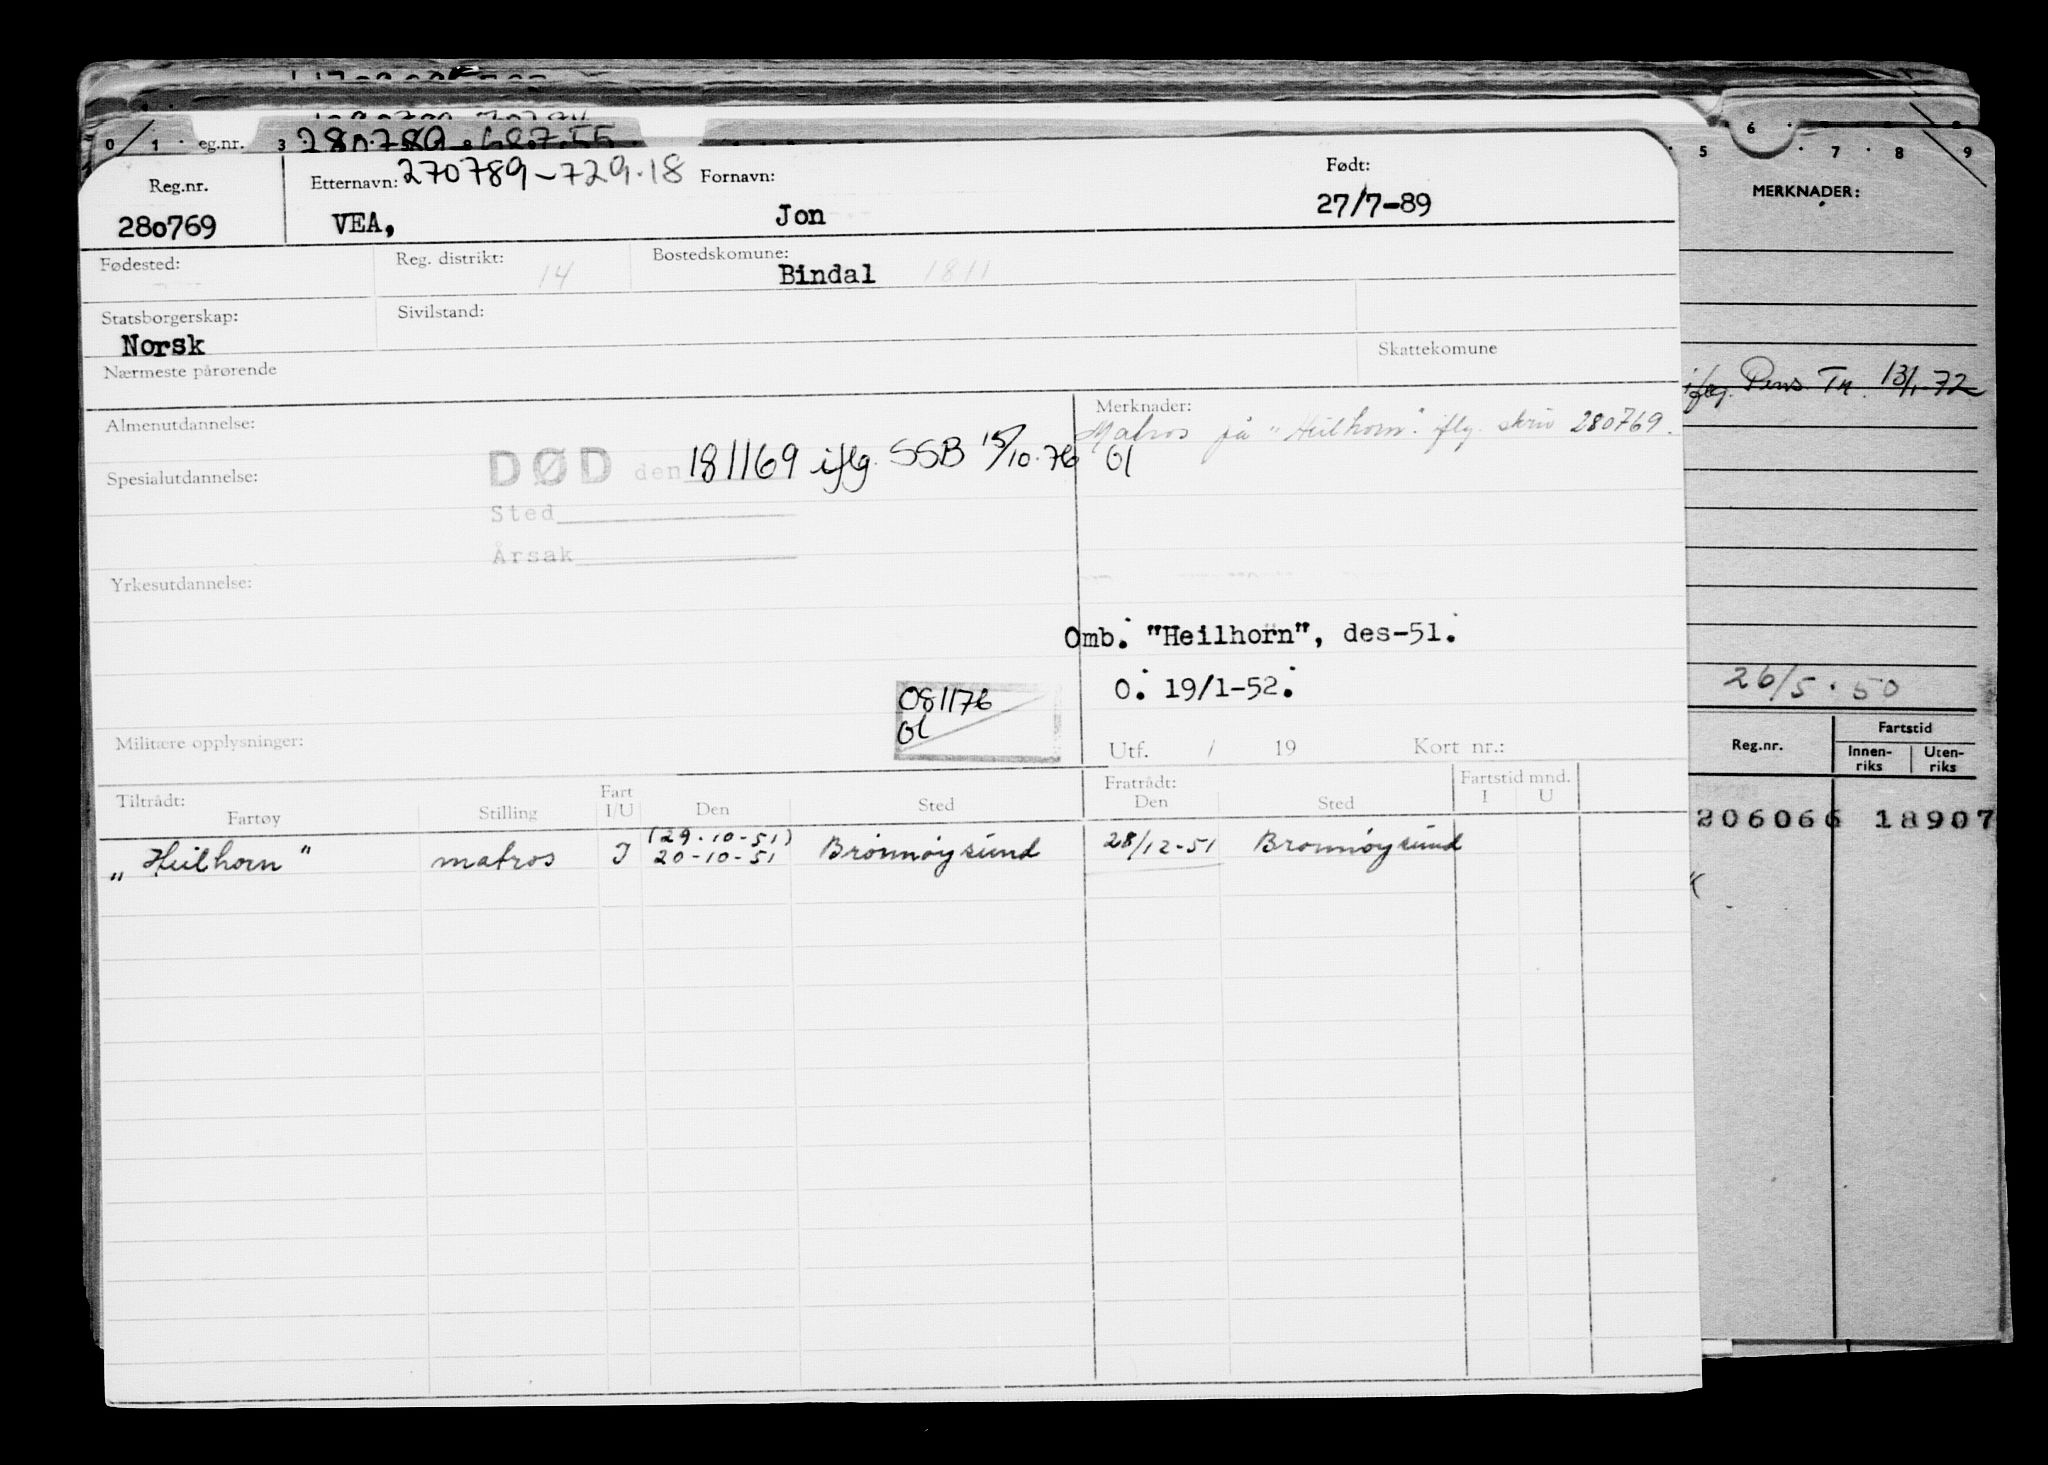 0 1 eg.nr. 3 280789
6
5 7 8 9
Reg.nr. Etternavn: 270789-729.18 Fornavn: Født:
280769 VEA, Jon 27/7-89
Fødested: Reg. distrikt: 14 Bostedskomune: Bindal 1811
Statsborgerskap: Sivilstand:
Norsk
Nærmeste pårørende Skattekomune
Almenutdannelse: Merknader:
Matros på "Heilhorn". iflg. skriv 280769.
DØD den 181169 iflg. SSB 15/10.76 Gl
Spesialutdannelse:
Sted
Årsak
Yrkesutdannelse:
Omb. "Heilhorn", des-51.
O. 19/1-52.
081176
Gl
Militære opplysninger: Utf. / 19 Kort nr.:
Tiltrådt: Fart Fratrådt: Fartstid mnd.
Fartøy Stilling I/U Den Sted Den Sted I U
(29.10-51)
„Heilhorn" matros I 20-10-51 Brønnøysund 28/12-51 Brønnøysund
MERKNADER:
iflg. Pens. Tr. 13/1-72
26/5.50
Reg.nr. Fartstid
Innen-riks Uten-riks
206066 18907